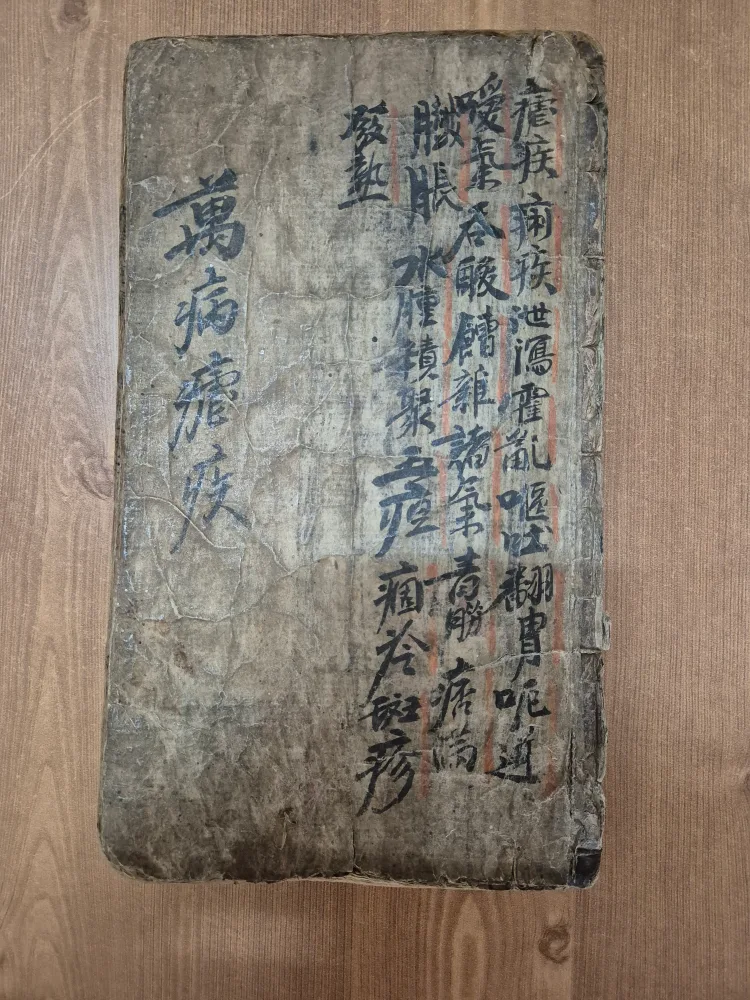 瘧疾痢疾泄瀉癨亂嘔吐翻胃呃逆
噯氣吞酸饋雜諸氣青筋痞滿
臌脹水腫積聚五疸痼冷斑疹
發熱
萬病瘧疾